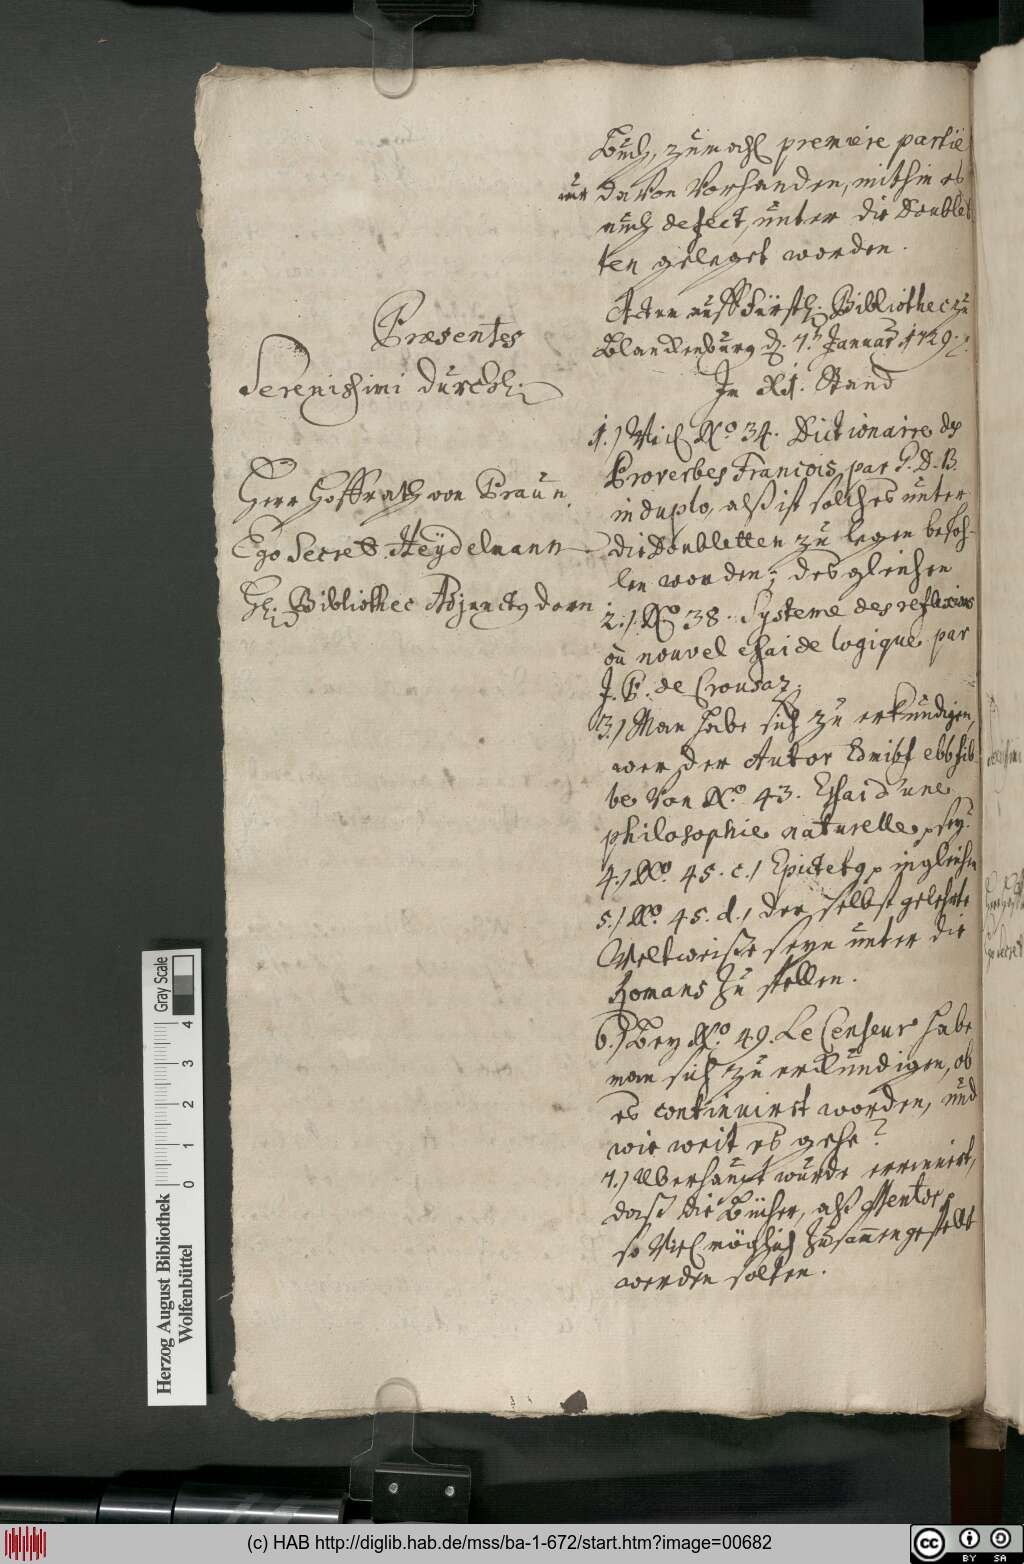 Buch, zumahl premiere partie
nur davon vorhanden, mithin es
auch defect, unter die Doublet
ten geleget worden.
Actum auff Fürstl: Bibliothec zu
Blanckenburg d. 7.t Januar 1729.
Præsentes
Serenissimi Durchl:
Herr Hoffrath von Praun
Ego Secret Heydelmann
H: Bibliothec Adjunctus Dorn
In XI. Stand
1.) Weil No 34. Dictionaire des
Proverbes Francois par G. D. B.
in duplo, alß ist solches unter
die Doubletten zu legen befoh-
len worden; desgleichen
2.) No 38. Systeme des reflexions
ou nouvel essai de logique par
J. P. de Crousaz.
3.) Man habe sich zu erkundigen,
wer der Autor
von No 43. Essai d'une
philosophie naturelle sey?
4.) No 45. c.) Epictetus ingleichen
5.) No 45. d., der selbst gelehrte
Weltweise seyn unter die
Romans zu stellen.
6.) Bey No 49. Le Censeur habe
man sich zu erkundigen, ob
es continuiret worden, und
wie weit es gehe?
7.) Überhaupt wurde erinnert,
daß die Bücher, alß
so viel möglich zusammengestellt
werden solten.
Herzog August Bibliothek
Wolfenbüttel
Gray Scale
0 1 2 3 4
(c) HAB http://diglib.hab.de/mss/ba-1-672/start.htm?image=00682
cc BY SA